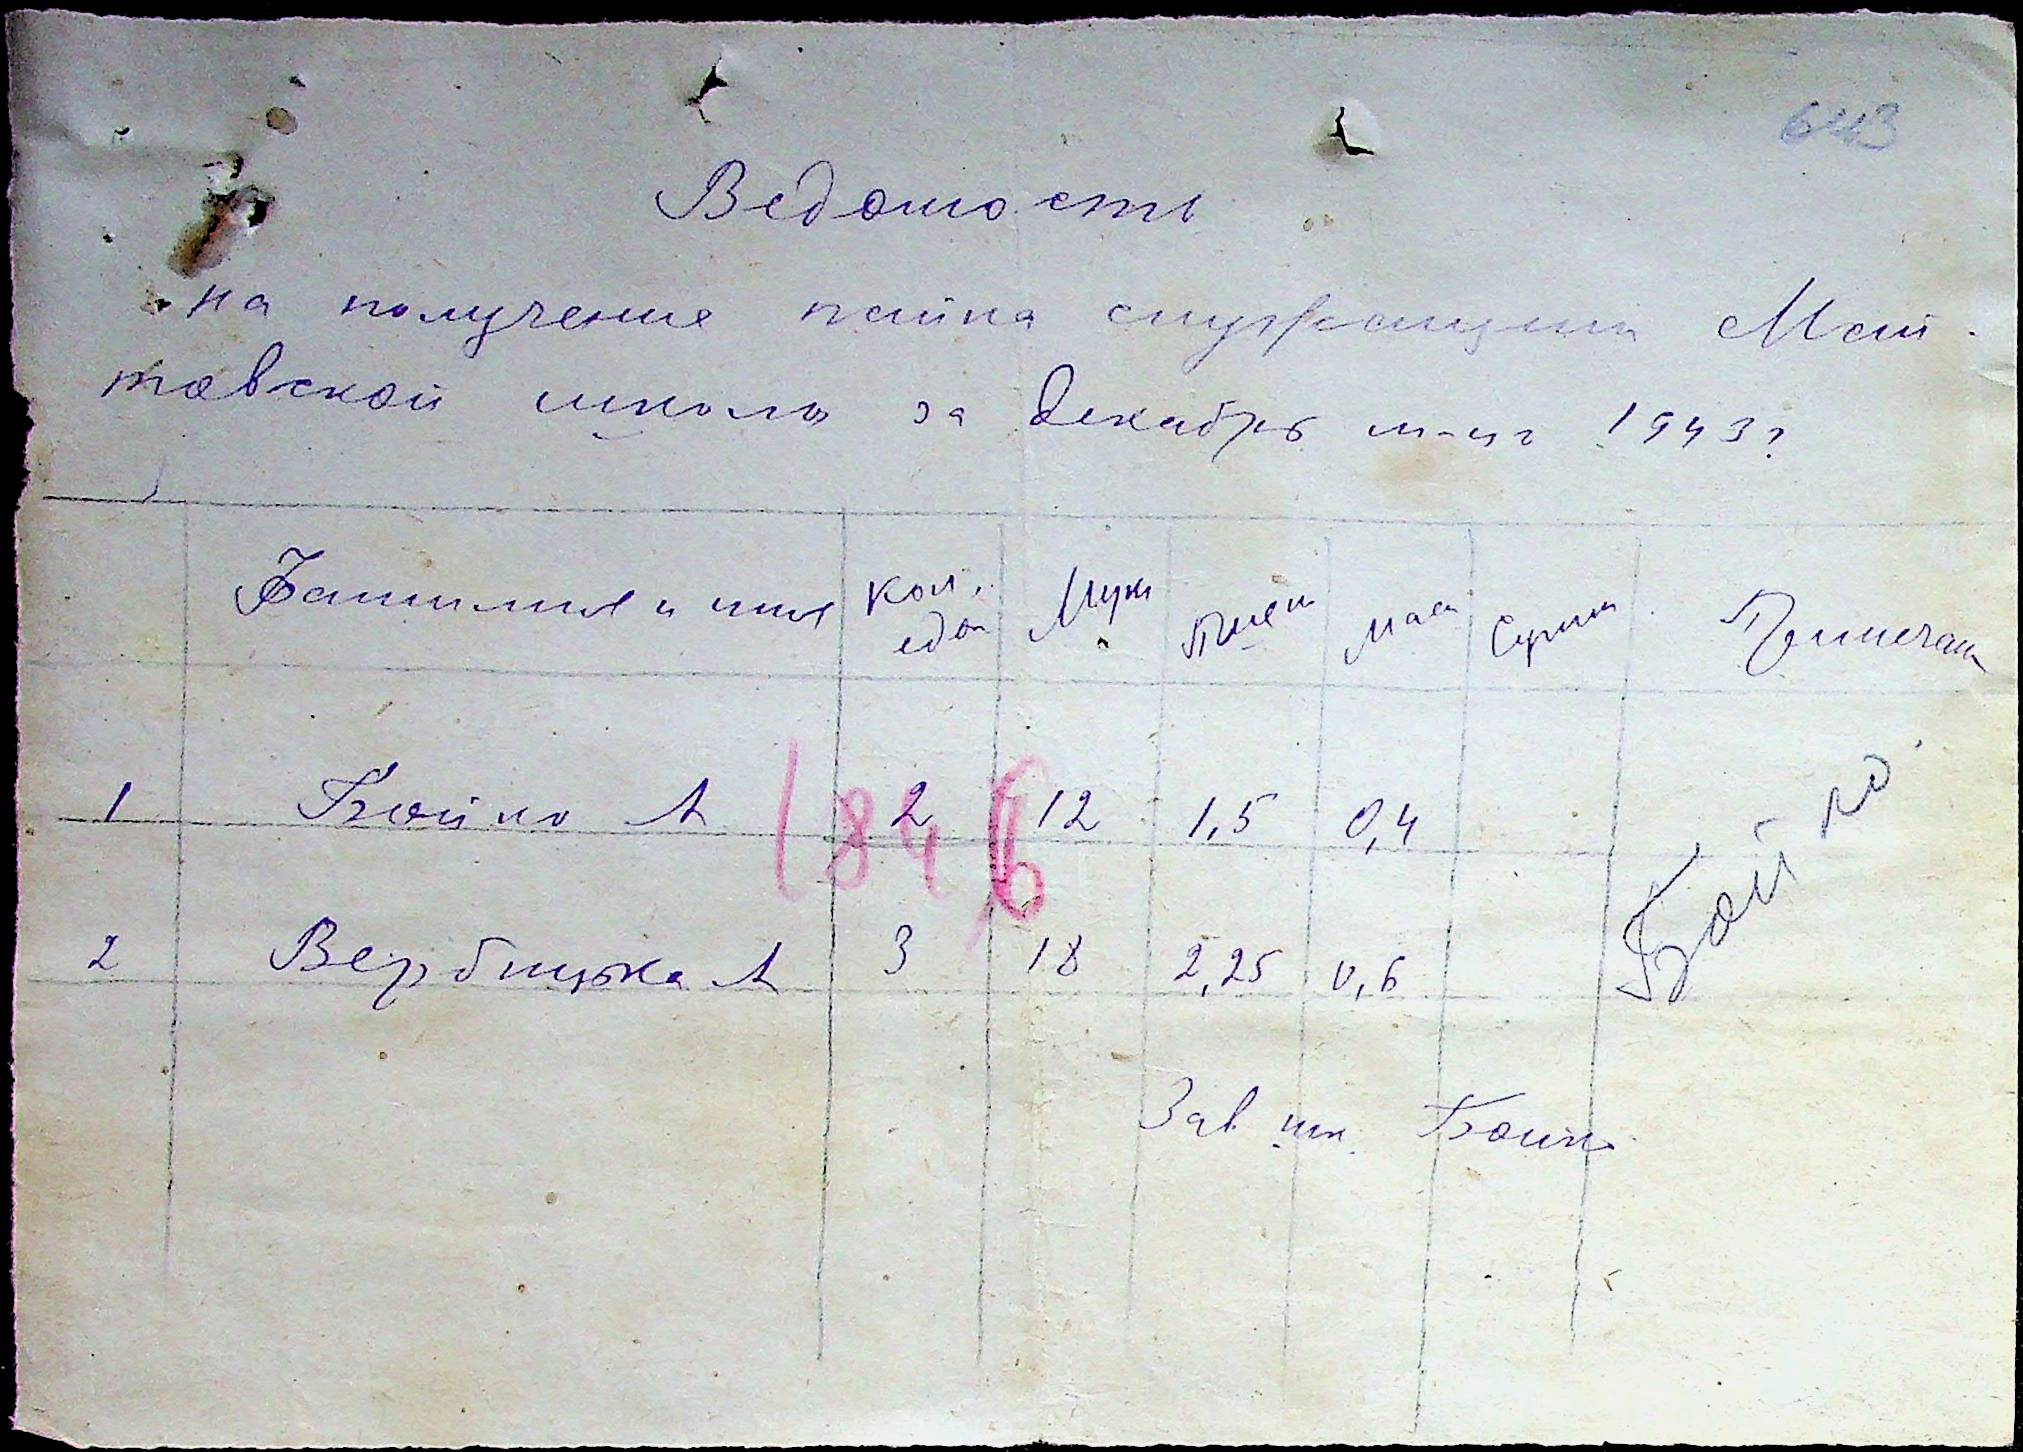 643
Ведомость
на получение пайка служащим Май-
товской школы за декабрь м-ц 1943 г
Фамилия и имя Кол. едок Мук Пшен Мас Сумм Примечан
1 Бойко А 2 12 1,5 0,4 Бойко
1846
2 Вербицька А 3 18 2,25 0,6
Зав шк. Бойко